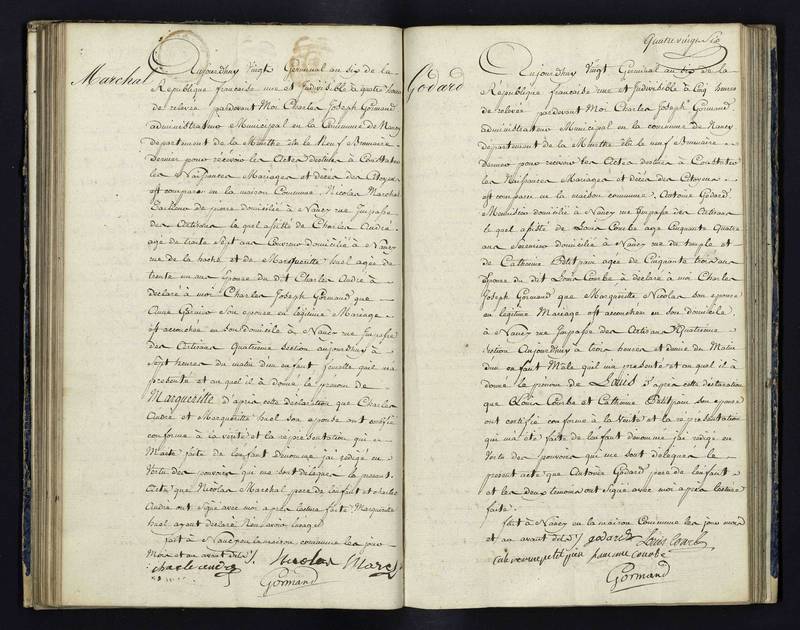 Marchal
Aujourdhuy Vingt Germinal an six de la
République francaise une et Indivisible à quatre heures
de relevée pardevant Moi Charles Joseph Gormand
administrateur Municipal en la Commune de Nancy
département de la Meurthe élu le Neuf Brumaire
Dernier pour recevoir les Actes destinés à Constater
les Naissances Mariages et décès des Citoyens
est comparu en la maison Commune, Nicolas Marchal
Tailleur de pierre domicilié à Nancy rue Impasse
des Artisans le quel assisté de Charles André
age de trente sept ans Couvreur domicilié à Nancy
rue de la hache et de Margueritte huel agée de
trente un ans Epouse du dit Charles André à
déclaré à moi Charles Joseph Gormand que
Anne son épouse en légitime Mariage
est accouchée en son domicile à Nancy rue Impasse
des Artisans Quatrieme section aujourdhuy à
Sept heures du matin d'un enfant femelle quil ma
présenté et au quel il à donné le prenom de
Margueritte d'après cette déclaration que Charles
André et Margueritte huel son épouse ont certifié
conforme à la vérité et la représentation qui
Maité faite de l'enfant denommé jai rédigé en
Vertu des pouvoirs qui me sont délégués le présent
Acte que Nicolas Marchal pere de lenfant et charles
André ont signé avec moi après lecture faite, Margueritte
huel ayant déclaré
fait à Nancy en la maison commune les jour
Mois et an avant dits
Nicolas Marc
Gormand
Quatre vingt Six
Godard
Aujourdhuy Vingt Germinal an six de la
République francaise une et Indivisible à Cinq heures
de relevée pardevant Moi Charles Joseph Gormand
administrateur Municipal en la commune de Nancy
département de la Meurthe élu le neuf Brumaire
Dernier pour recevoir les Actes destinés à Constater
les Naissances Mariages et décès des Citoyens
est comparu en la maison commune, Antoine Godard
Menuisier domicilié à Nancy rue Impasse des Artisans
le quel assisté de Louis Courbe age Cinquante Quatre
ans domicilié à Nancy rue du temple et
de Catherine Petit pain agée de Cinquante trois ans
épouse du dit Louis Courbe à déclaré à moi Charles
Joseph Gormand que Margueritte Nicolas son epouse
en légitime Mariage est accouchée en son domicile
à Nancy rue Impasse des Artisans Quatrieme
section Aujourdhuy à trois heures et demie du Matin
d'un enfant Mâle quil ma présenté et au quel il à
donné le prenom de Louis d'après cette déclaration
que Louis Courbe et Catherine Petit pain son épouse
ont certifié conforme à la vérité et la représentation
qui ma eté faite de l'enfant dénommé jai rédigé en
Vertu des pouvoirs qui me sont délégués le
présent acte que Antoine Godard pere de l'enfant
et les deux temoins ont signé avec moi après lecture
faite
fait à Nancy en la maison Commune les jour mois
et an avant dits godard Louis Courb
petit pin femme Courbe
Gormand